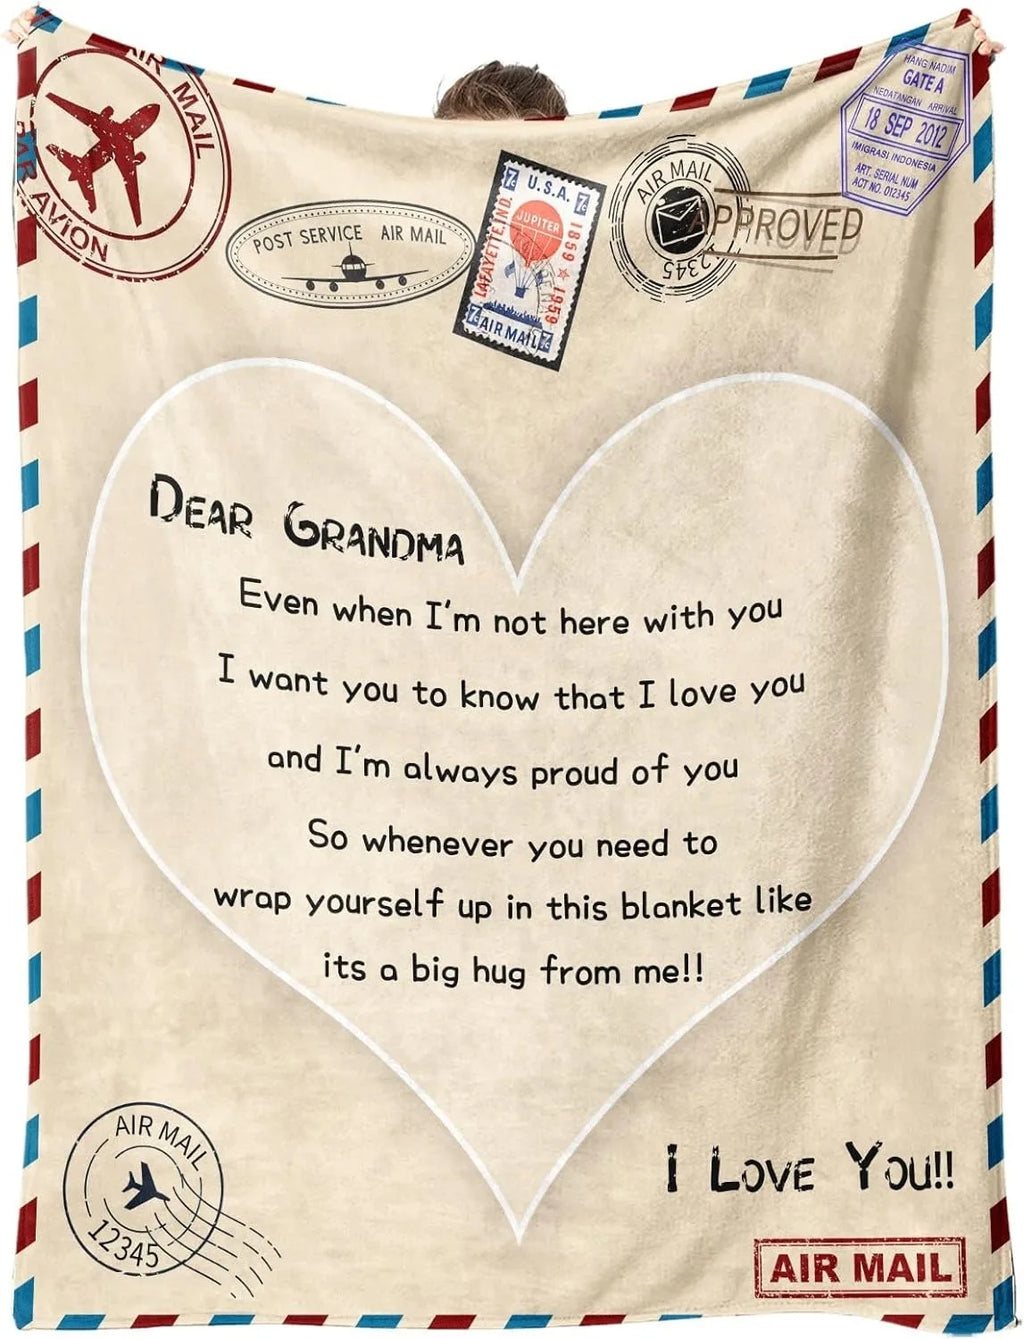 AIR MAIL
PAR AVION
POST SERVICE AIR MAIL
7c U.S.A. 7c
LAFAYETTE, IND.
JUPITER
1859 ★ 1959
7c AIR MAIL 7c
AIR MAIL
12345
APPROVED
HANG NADIM
GATE A
KEDATANGAN ARRIVAL
18 SEP 2012
IMIGRASI INDONESIA
ART. SERIAL NUM
ACT NO. 012345
DEAR GRANDMA
Even when I'm not here with you
I want you to know that I love you
and I'm always proud of you
So whenever you need to
wrap yourself up in this blanket like
its a big hug from me!!
I LOVE YOU!!
AIR MAIL
12345
AIR MAIL